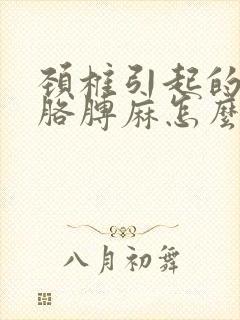 颈椎引起的
胳膊麻怎麼
八月初舞